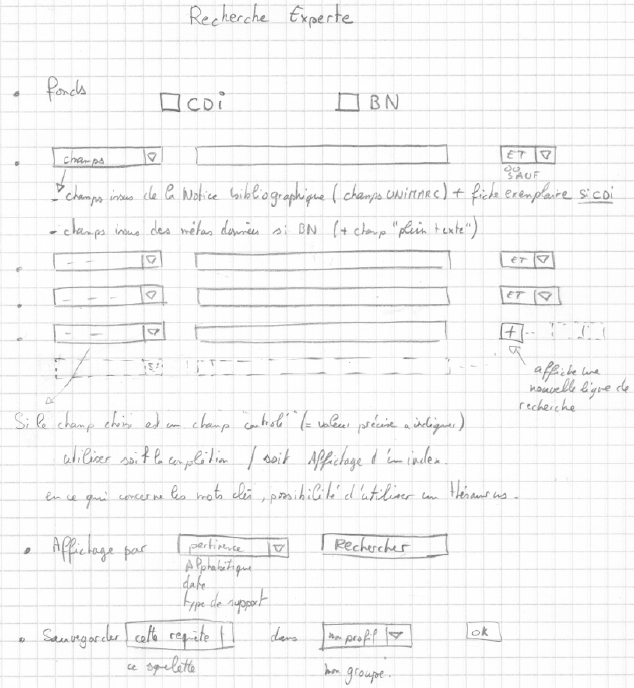 Recherche Experte
• fonds
CDi BN
• champs ET
OU
SAUF
- champs issus de la Notice bibliographique (champs UNIMARC) + fiche exemplaire si CDI
- champs issus des méta données si BN (+ champ "plein texte")
• - - ET
• - - - ET
• - - +
affiche une
nouvelle ligne de
recherche
Si le champ choisi est un champ "controlé" (= valeur précise a indiquer)
utiliser soit la complétion / soit Affichage d'un index.
en ce qui concerne les mots clés, possibilité d'utiliser un thésaurus.
• Affichage par pertinence Rechercher
Alphabétique
date
type de support
• Sauvegarder cette requête dans mon profil ok
ce squelette mon groupe.